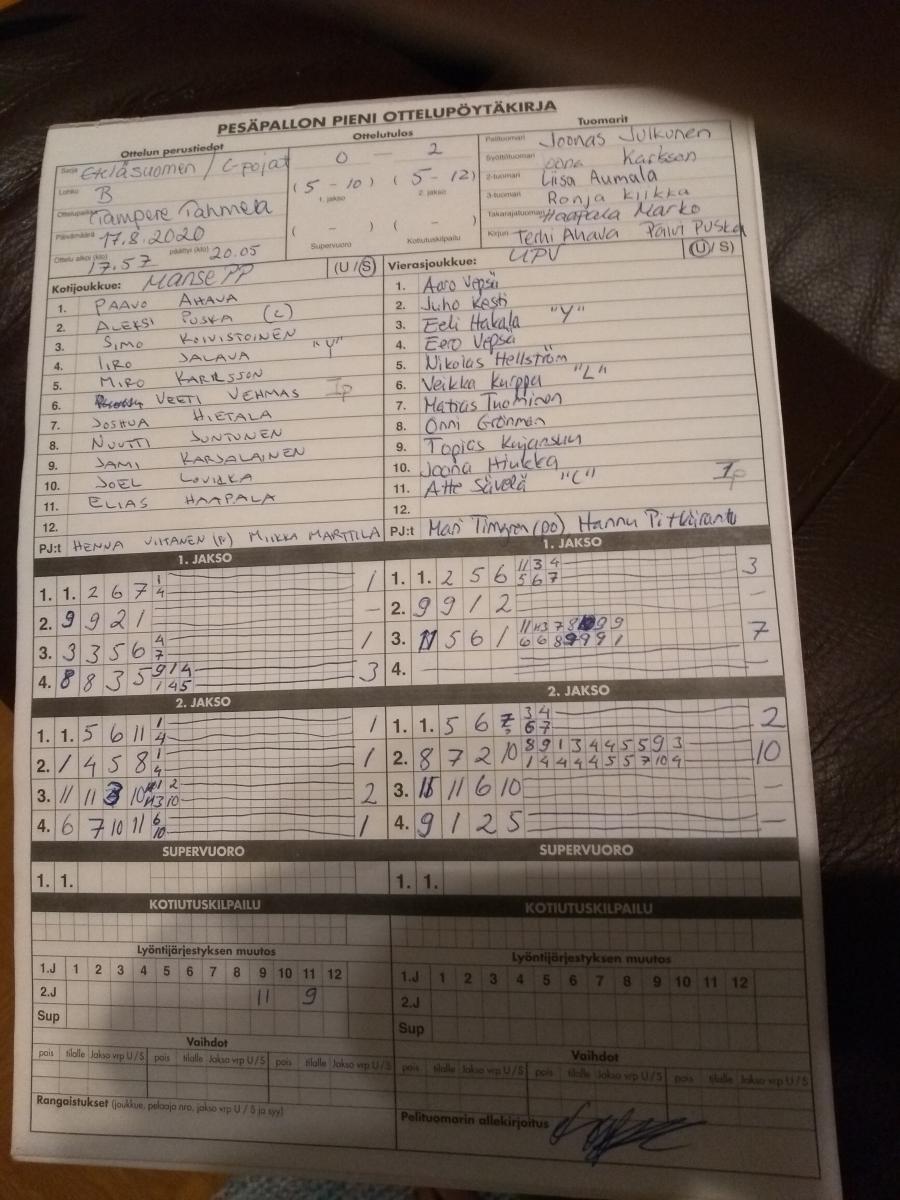 PESÄPALLON PIENI OTTELUPÖYTÄKIRJA
Ottelun perustiedot
Ottelutulos
Tuomarit
Sarja Eteläsuomen / C-pojat
Lohko B
Ottelupaikka Tampere Tahmela
Päivämäärä 17.8.2020
Ottelu alkoi (klo) 17.57 päättyi (klo) 20.05
0 - 2
(5 - 10) (5 - 12)
1. jakso 2. jakso
( - ) ( - )
Supervuoro Kotiutuskilpailu
Pelituomari Joonas Julkunen
Syöttötuomari Karlsson
2-tuomari Liisa Aumala
3-tuomari Ronja Kliikka
Takarajatuomari Haapala Marko
Kirjuri Terhi Ahava Päivi Puska
Kotijoukkue: Manse PP (U/S)
1. PAAVO AHAVA
2. ALEKSI PUSKA (L)
3. SIMO KOIVISTOINEN
4. IIRO JALAVA "Y"
5. MIRO KARLSSON
6. VEETI VEHMAS Ip
7. JOSHUA HIETALA
8. NUUTTI JUNTUNEN
9. JAMI KARJALAINEN
10. JOEL
11. ELIAS HAAPALA
12.
PJ:t HENNA VIITANEN (P) MIIKKA MARTTILA
Vierasjoukkue: UPV (U/S)
1. Aaro Vepsä
2. Juho Kesti
3. Eeli Hakala "Y"
4. Eero Vepsä
5. Nikolas Hellström
6. Veikka Kurppa "L"
7. Matias Tuominen
8. Onni Grönman
9. Topias Kujansuu
10. Joona Hiukka
11. Atte Sävelä "C" Ip
12.
PJ:t Mari Timgren (po) Hannu Pitkäranta
1. JAKSO
1. 1. 2 6 7 1 4 1
2. 9 9 2 1 –
3. 3 3 5 6 4 7 1
4. 8 8 3 5 9 1 4 1 4 5 3
1. JAKSO
1. 1. 2 5 6 11 3 4 5 6 7 3
2. 9 9 1 2 –
3. 11 5 6 1 7
4.
2. JAKSO
1. 1. 5 6 11 1 4 1
2. 1 4 5 8 1 4 1
3. 11 11 3 10 2
4. 6 7 10 11 6 10 1
2. JAKSO
1. 1. 5 6 7 3 4 6 7 2
2. 8 7 2 10 8 9 1 3 4 4 5 5 9 3 1 4 4 4 4 5 5 7 10 4 10
3. 11 11 6 10 –
4. 9 1 2 5 –
SUPERVUORO
1. 1.
SUPERVUORO
1. 1.
KOTIUTUSKILPAILU
KOTIUTUSKILPAILU
Lyöntijärjestyksen muutos
1.J 1 2 3 4 5 6 7 8 9 10 11 12
2.J 11 9
Sup
Lyöntijärjestyksen muutos
1.J 1 2 3 4 5 6 7 8 9 10 11 12
2.J
Sup
Vaihdot
pois tilalle Jakso vrp U/S pois tilalle Jakso vrp U/S pois tilalle Jakso vrp U/S
Vaihdot
pois tilalle Jakso vrp U/S pois tilalle Jakso vrp U/S pois tilalle Jakso vrp U/S
Rangaistukset (joukkue, pelaaja nro, jakso vrp U / S ja syy)
Pelituomarin allekirjoitus